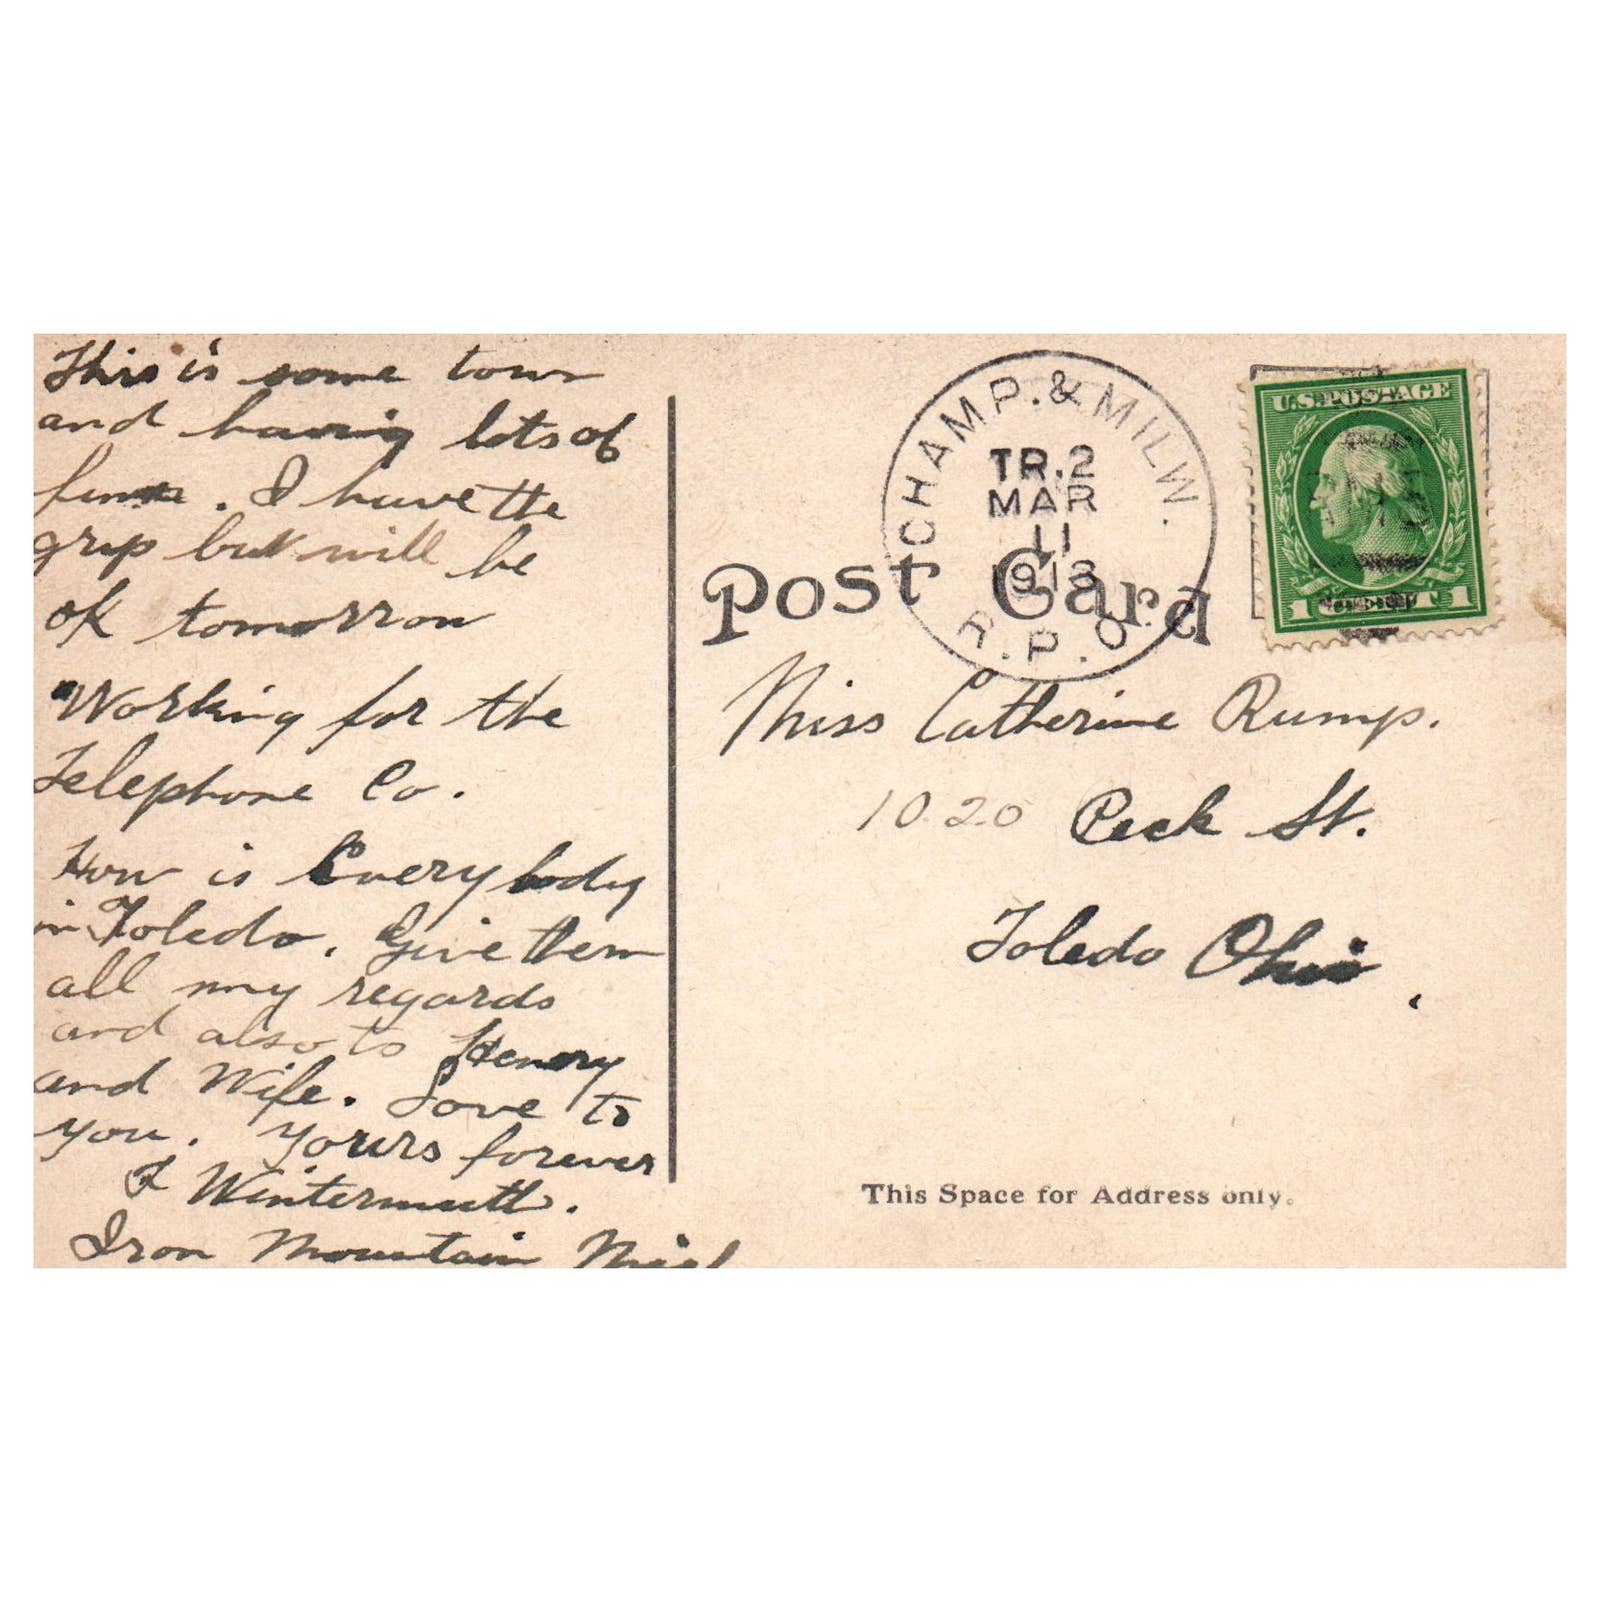 This is some town
and having lots of
fun. I have the
grip but will be
ok tomorrow
Working for the
Telephone Co.
How is Everybody
in Toledo. Give them
all my regards
and also to Henery
and Wife. Love to
you. Yours forever
Wintermuth.
Iron Mountain Mich
CHAMP. & MILW.
TR.2
MAR
11
1913
R.P.O
U.S. POSTAGE
1 CENT 1
Post Card
Miss Catherine Rump.
1020 Peck St.
Toledo Ohio.
This Space for Address only.